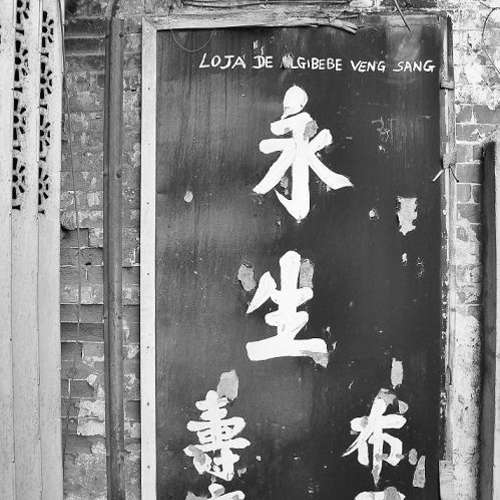 LOJA DE ALGIBEBE VENG SANG
永
生
壽 布